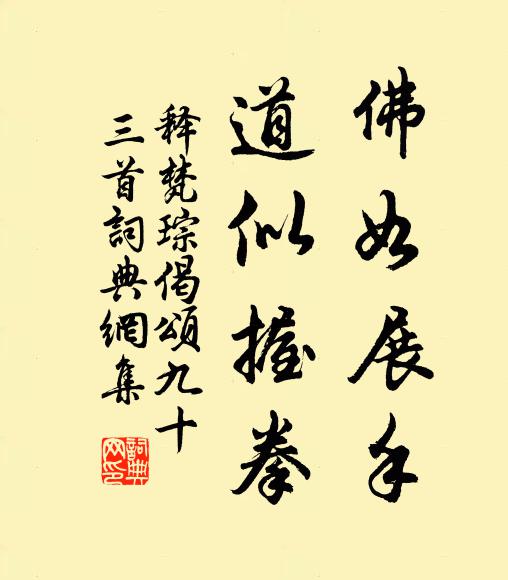 佛如展手
道似握拳
释梵琮偈頌九十
三首詞典網集
詞典网印